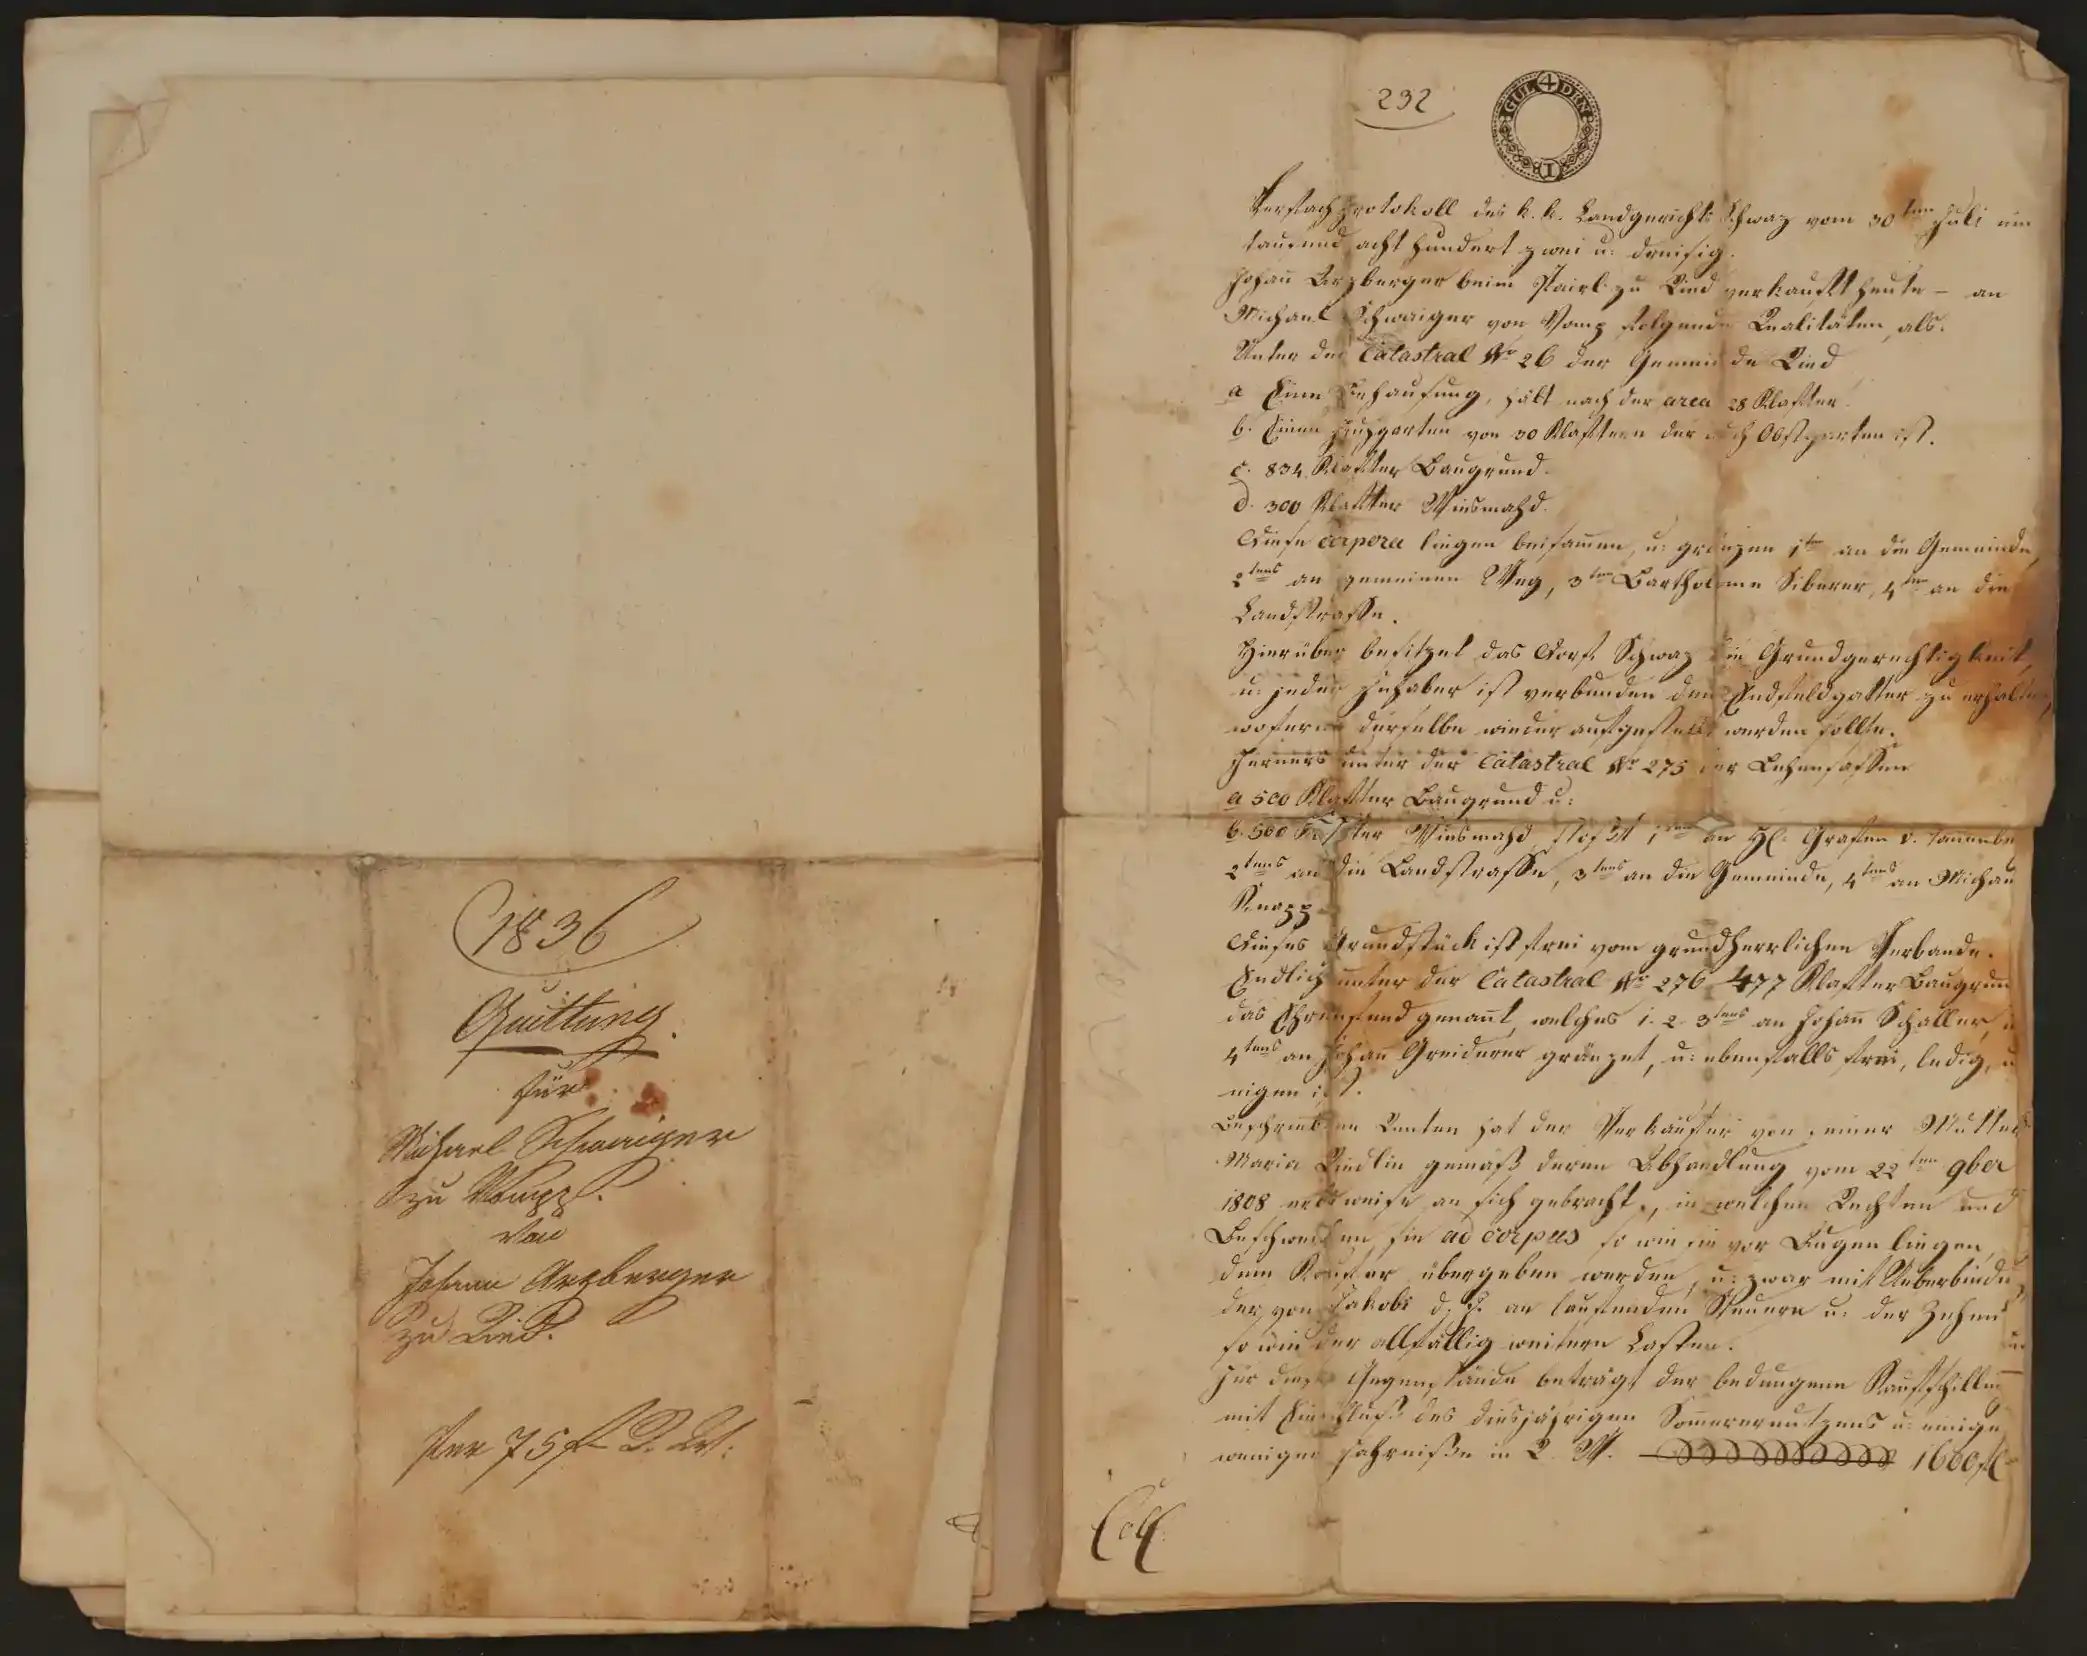 1836
Quittung
für
Michael Schwaiger
zu Vomp.
von
Johann Arzberger
zu Ried.
Per 75 f R. W:
232
GUL 4 DEN
1
Verfachprotokoll des k. k. Landgerichts Schwaz vom 30ten Juli ein
tausend acht hundert zwei u: dreisig.
Johan̄ Arzberger beim Stairl zu Ried verkauft heute – an
Michael Schwaiger von Vomp folgende Realitäten, als:
Unter der Catastral No 26 der Gemeinde Ried
a Eine Behausung, hält nach der area 28 Klafter.
b. Einen Hausgarten von 30 Klaftern der auch Obstgarten ist.
c. 834 Klafter Baugrund.
d. 300 Klafter Wiesmahd.
Diese corpora liegen beisam̄en, u: gränzen 1ten an die Gemeinde,
2tens an gemeinen Weg, 3ten Bartholome Siberer, 4ten an die
Landstrasse.
Hierüber besitzet das Dorf Schwaz die Grundgerechtigkeit,
u: jeder Inhaber ist verbunden den Endfeldgatter zu erhalten,
wofern derselbe wieder aufgestellt werden sollte.
Ferners unter der Catastral No 275 der Lehensassen
a 500 Klafter Baugrund u:
b. 500 Klafter Wiesmahd, stosst 1tens an H: Grafen v. Tannenbe
2tens an die Landstrasse, 3tens an die Gemeinde, 4tens an Michael
Knapp
Dieses Grundstück ist frei vom grundherrlichen Verbande.
Endlich unter der Catastral No 276 477 Klafter Baugrund
das genan̄t, welches 1. 2. 3tens an Johan̄ Schaller, u
4tens an Johan̄ Greiderer gränzet, u: ebenfalls frei, ledig, u
eigen ist.
Beschrieben Renten hat der Verkäufer von seiner Mutter
Maria Riedlin gemäß deren Abhandlung vom 22ten 9ber
1808 erbsweise an sich gebracht, in welchen Rechten und
Beschwerden sie ad corpus so wie sie vor Augen liegen,
dem Käufer übergeben werden, u: zwar mit Ueberbindu
der von Jakobi d. J. an laufenden Steuern u: der Zehent
so wie der allfällig weitern Lasten.
Für diese Gegenstände beträgt der bedungene Kaufschilling
mit Einschluß des diesjährigen Som̄ernutzens u: einige
weniger Fahrniße in R. W. 1600 fl
Coll